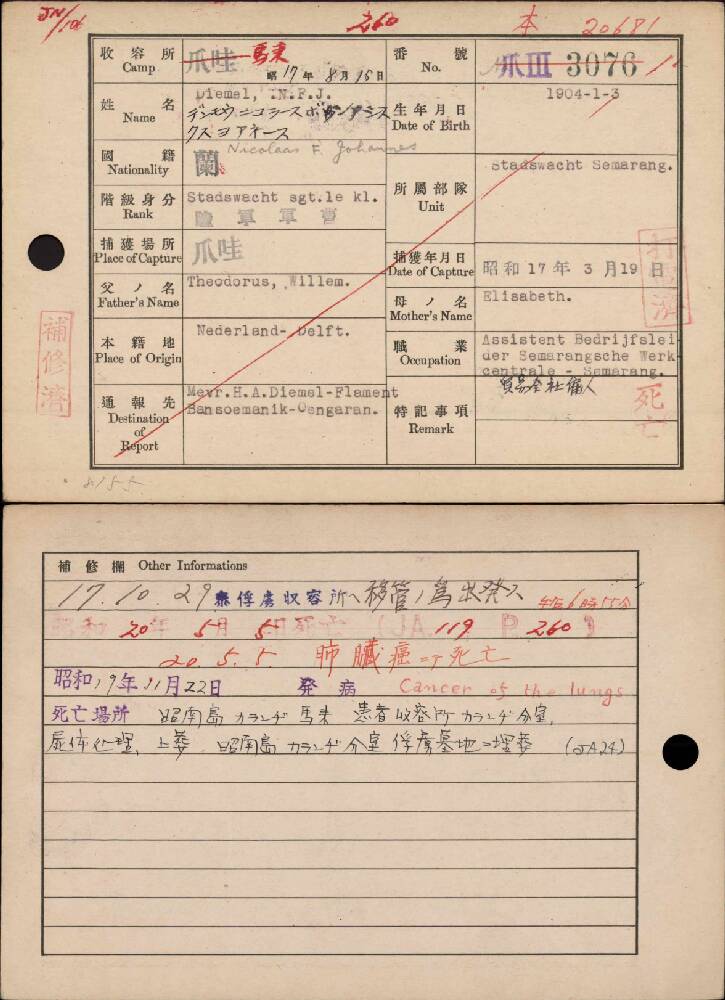 JN/106
260
本 20681
收容所 Camp 爪哇 馬来
昭17年8月15日
番號 No. 爪III 3076
姓名 Name Diemel, N.F.J.
クスヨアネース
Nicolaas F. Johannes
生年月日 Date of Birth 1904-1-3
國籍 Nationality 蘭
所屬部隊 Unit Stadswacht Semarang.
階級身分 Rank Stadswacht sgt.1e kl.
陸軍軍曹
捕獲場所 Place of Capture 爪哇
捕獲年月日 Date of Capture 昭和17年3月19日
父ノ名 Father's Name Theodorus, Willem.
母ノ名 Mother's Name Elisabeth.
本籍地 Place of Origin Nederland- Delft.
職業 Occupation Assistent Bedrijfslei
der Semarangsche Werk-
centrale - Semarang.
通報先 Destination of Report Mevr.H.A.Diemel-Flament
Bansoemanik-Oengaran.
特記事項 Remark
補修濟
死亡
8155
補修欄 Other Informations
17.10.29 泰俘虜収容所へ移管ノ為出発ス 午后6時15分
昭和20年5月5日死亡 (JA.119 P.260)
20.5.5. 肺臓癌ニテ死亡
昭和19年11月22日 発病 Cancer of the lungs
死亡場所 昭南島カランヂ馬来 患者収容所カランヂ分室,
屍体処理, 土葬 昭南島カランヂ分室俘虜墓地ニ埋葬 (JA24)